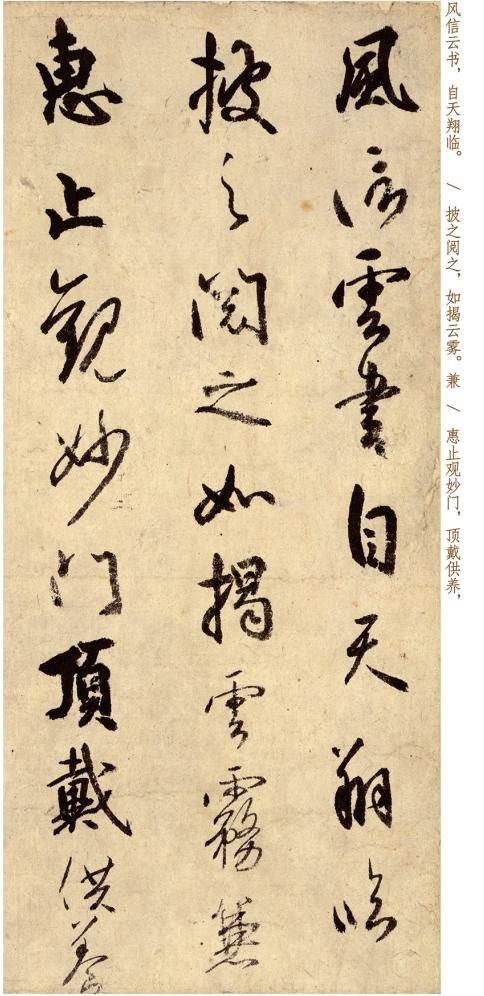 风信云书，自天翔临。 / 披之阅之，如揭云雾。兼 / 惠止观妙门，顶戴供养，
風信雲書自天翔臨
披之閱之如揭雲霧兼
惠止觀妙門頂戴供養